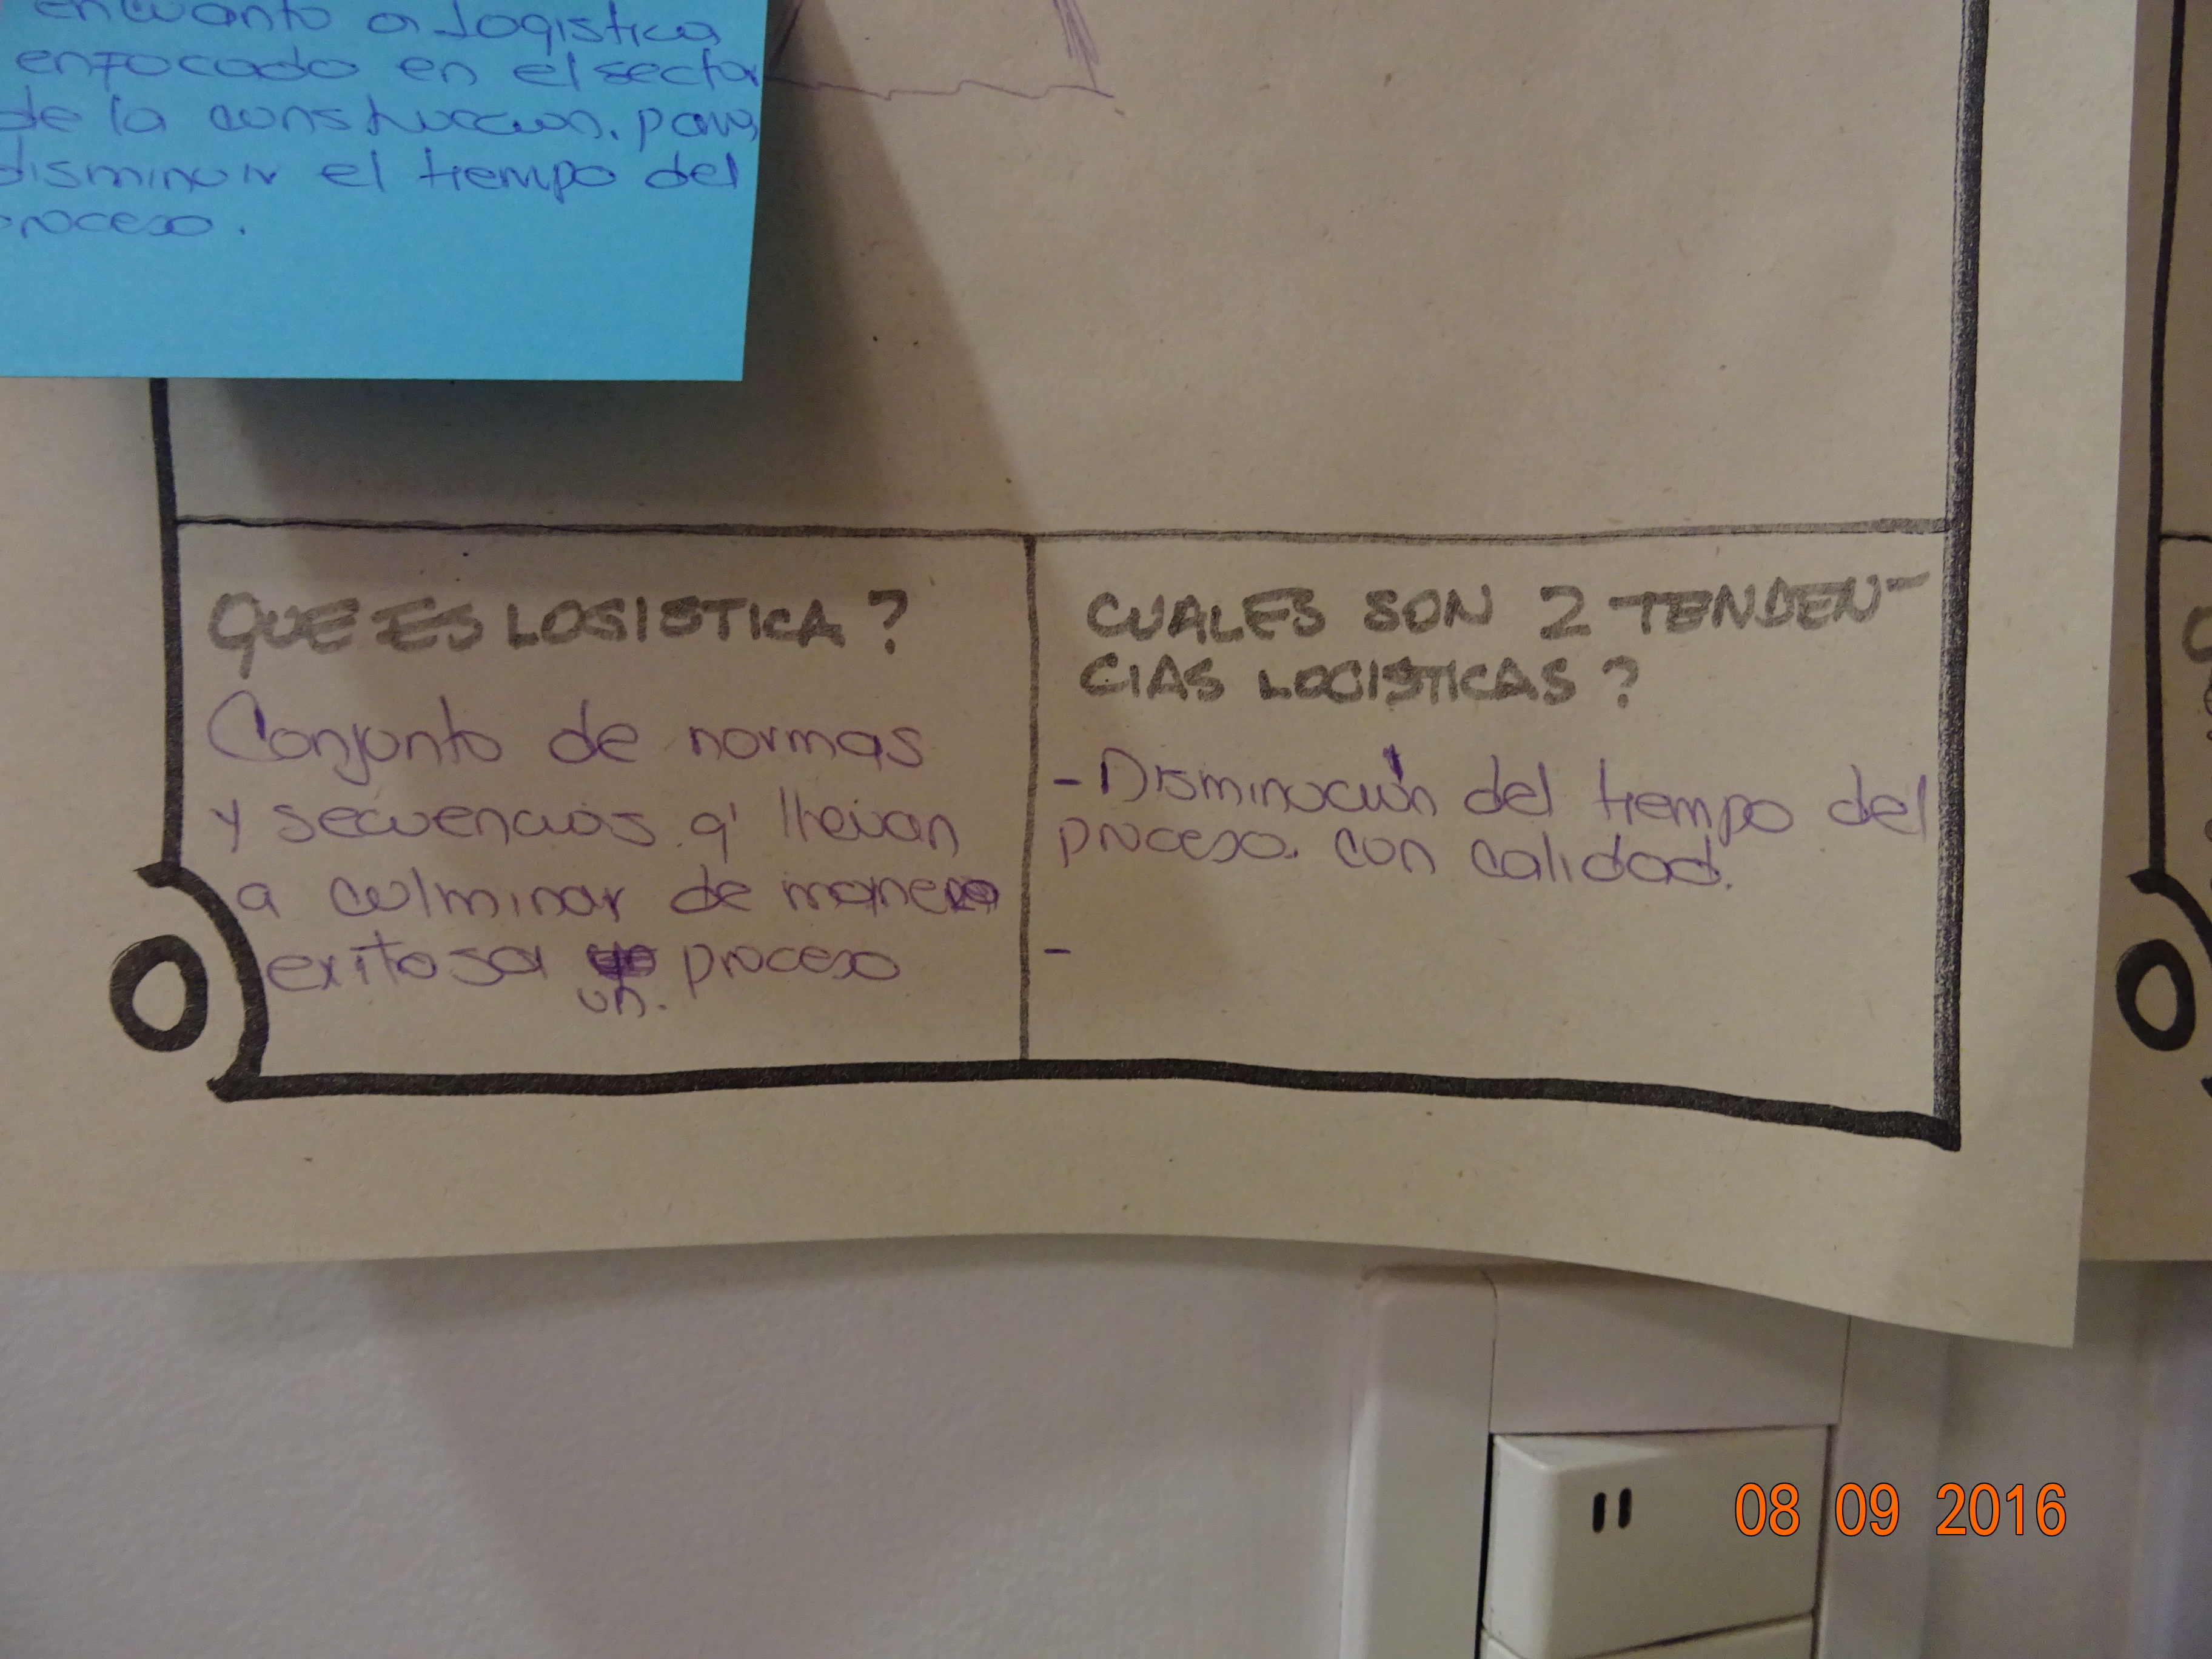 encuanto a logistica
enfocado en el sector
de la construccion. para
disminuir el tiempo del
proceso.
QUE ES LOGISTICA?
Conjunto de normas
y secuencias q' llevan
a culminar de manera
exitosa proceso
un.
CUALES SON 2 TENDEN-
CIAS LOGISTICAS?
- Disminución del tiempo del
proceso. con calidad.
-
08 09 2016